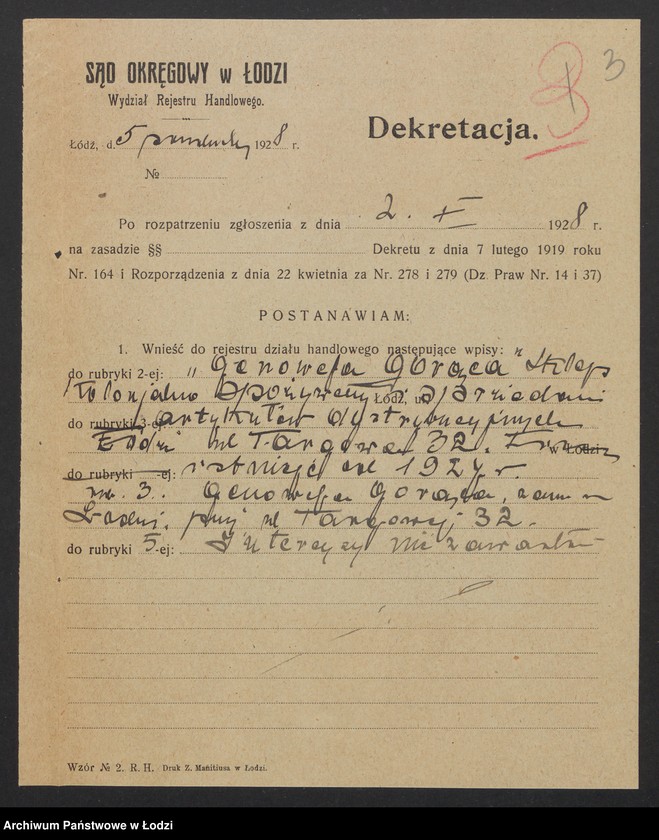 3
3
SĄD OKRĘGOWY w ŁODZI
Wydział Rejestru Handlowego.
Dekretacja.
Łódź, d. 5 1928 r.
№
Po rozpatrzeniu zgłoszenia z dnia 2. XI 1928 r.
na zasadzie §§ Dekretu z dnia 7 lutego 1919 roku
Nr. 164 i Rozporządzenia z dnia 22 kwietnia za Nr. 278 i 279 (Dz. Praw Nr. 14 i 37)
POSTANAWIAM:
1. Wnieść do rejestru działu handlowego następujące wpisy:
do rubryki 2-ej: „Genowefa Gorąca" Sklep
Kolonjalno Spożywczy i sprzedaż Łódź, ul.
do rubryki 3-ej: artykułów dystrybucyjnych
Łódź ul Targowa 32. w Łodzi
do rubryki -ej: istnieje od 1927 r.
3. Genowefa Gorąca, zam w
Łodzi, przy ul Targowej 32.
do rubryki 5-ej: Intercyzy nie zawarła
Wzór № 2. R. H. Druk Z. Manitiusa w Łodzi.
Archiwum Państwowe w Łodzi